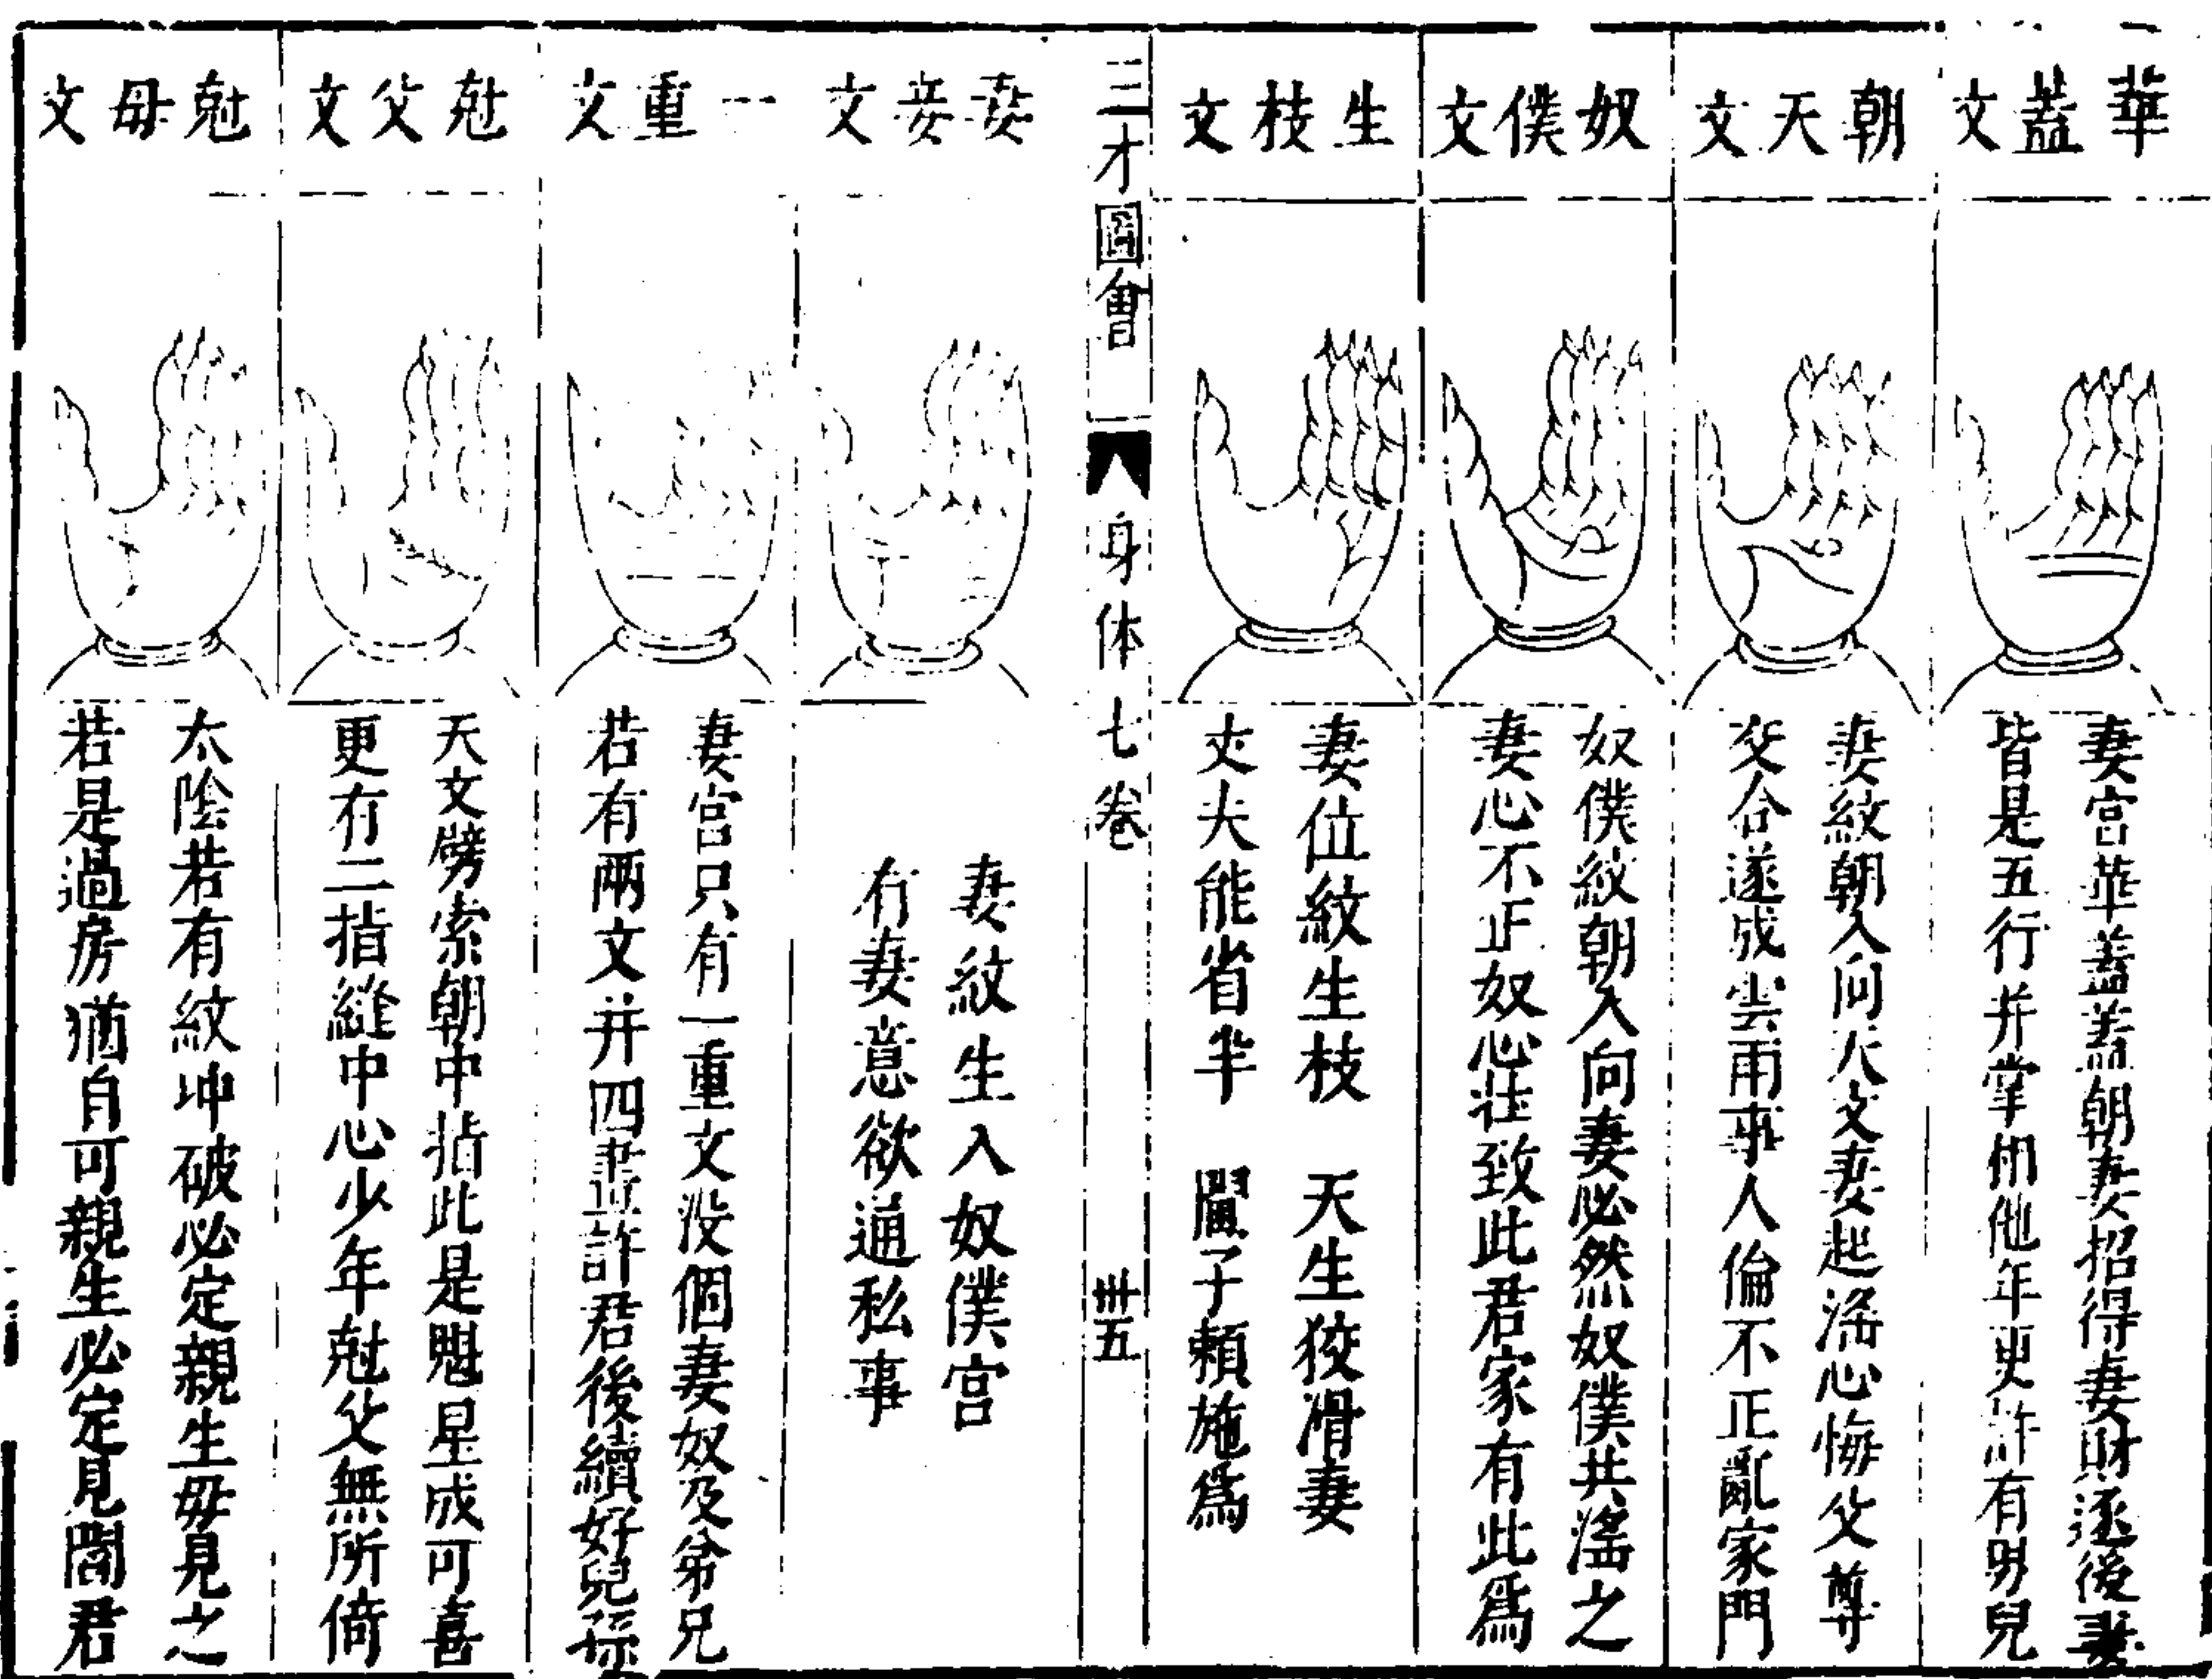 華蓋文
妻宮華蓋蓋朝妻招得妻財逐後妻
皆是五行并掌 他年更許有男兒
朝天文
妻紋朝入向天文妻起滛心悔父尊
交合遂成雲雨事人倫不正亂家門
奴僕文
奴僕紋朝入向妻必然奴僕共滛之
妻心不正奴心壮致此君家有此爲
生枝文
妻位紋生枝　天生狡滑妻
丈夫能省半　閫子頼施爲
三才圖會
身体七卷
卅五
妻妾文
妻紋生入奴僕宫
有妻意欲通私事
一重文
妻宮只有一重文没個妻奴及弟兄
若有兩文并四畫許君後續好兒孫
尅父文
天文劈索朝中指此是魁星成可喜
更有二指縫中心少年尅父無所倚
尅母文
太陰若有紋坤破必定親生母見之
若是過房猶自可親生必定見閻君